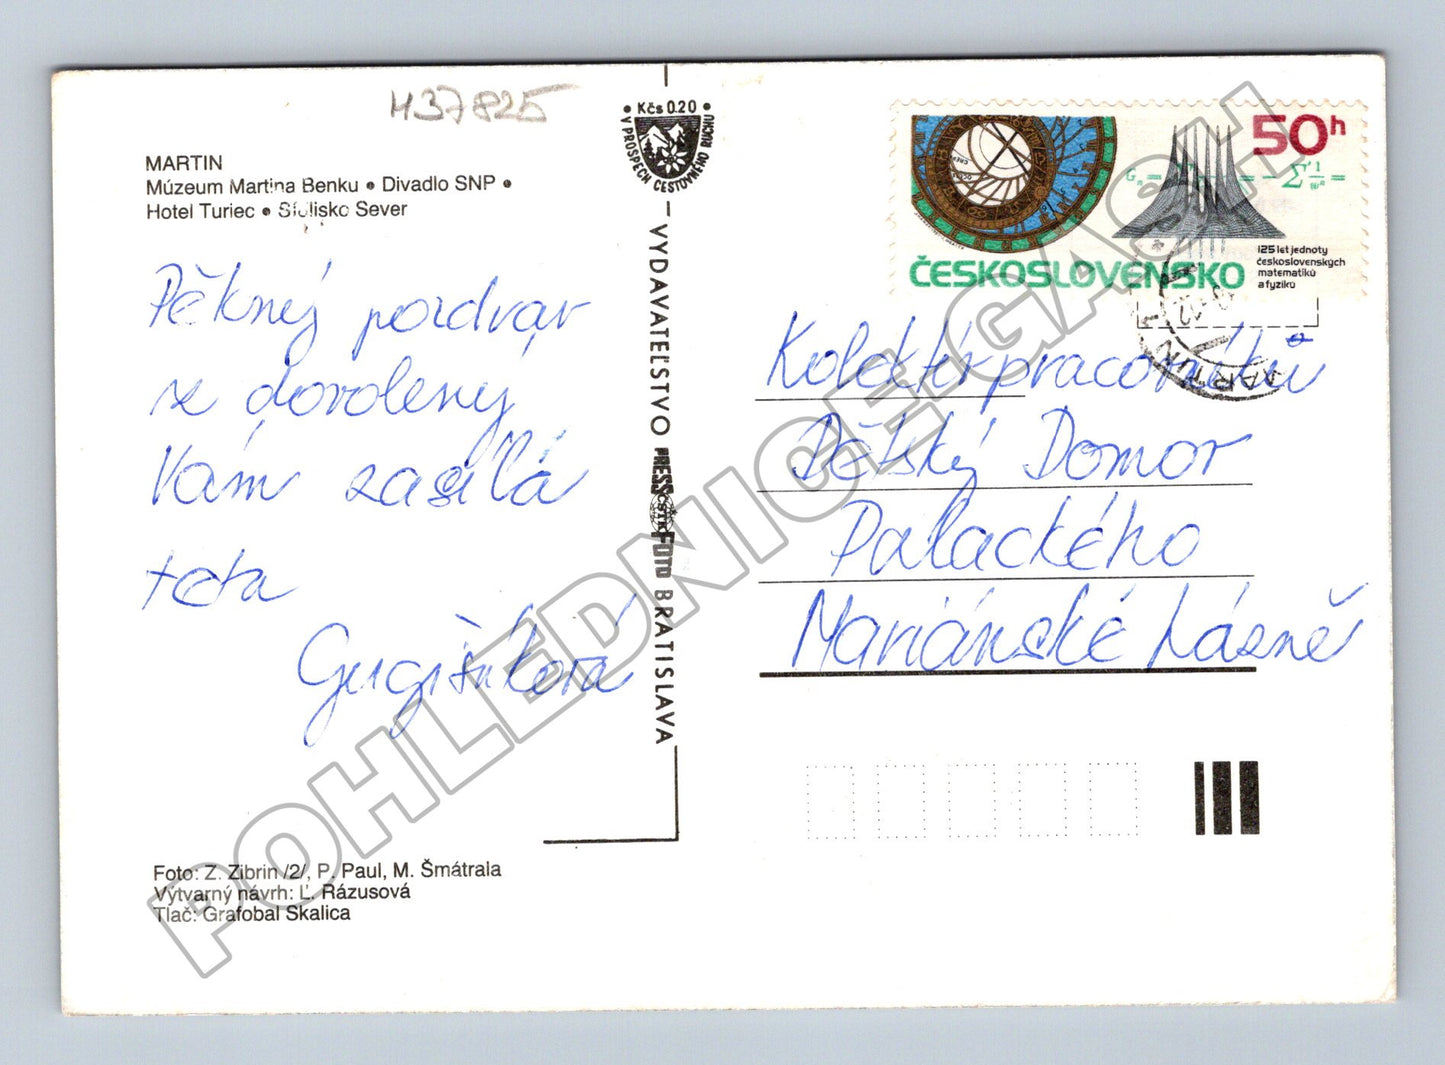 H37825
MARTIN
Múzeum Martina Benku • Divadlo SNP •
Hotel Turiec • Sídlisko Sever
Pěkný pozdrav
ze dovolený
Vám zasílá
teta
Gugišníková
Foto: Z. Zibrin /2/, P. Paul, M. Šmátrala
Výtvarný návrh: Ľ. Rázusová
Tlač: Grafobal Skalica
• Kčs 0.20 •
V PROSPECH CESTOVNÉHO RUCHU
VYDAVATEĽSTVO PRESSFOTO BRATISLAVA
ČSTK
50h
125 let jednoty
československých
matematiků
a fyziků
ČESKOSLOVENSKO
MARTIN 1
Kolektív pracovníků
Dětský Domov
Palackého
Mariánské Lázně
POHLEDNICE.GASH